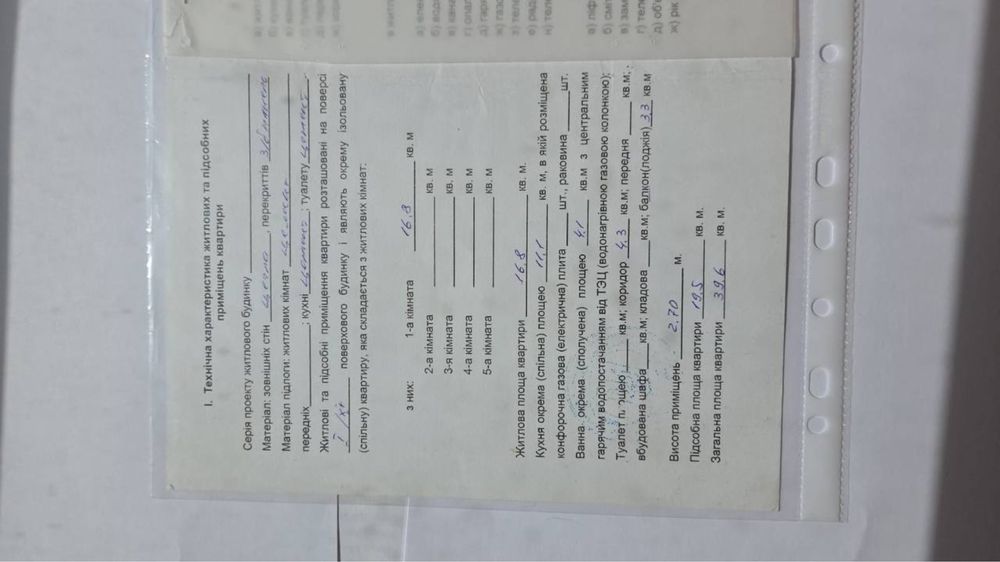 І. Технічна характеристика житлових та підсобних
приміщень квартири
Серія проекту житлового будинку
Матеріал: зовнішніх стін цегла, перекриттів
Матеріал підлоги: житлових кімнат
передніх ; кухні ; туалету
Житлові та підсобні приміщення квартири розташовані на поверсі
поверхового будинку і являють окрему ізольовану
(спільну) квартиру, яка складається з житлових кімнат:
з них: 1-а кімната 16.8 кв. м
2-а кімната кв. м
3-я кімната кв. м
4-а кімната кв. м
5-а кімната кв. м
Житлова площа квартири 16,8 кв. м.
Кухня окрема (спільна) площею 11,1 кв. м, в якій розміщена
конфорочна газова (електрична) плита шт., раковина шт.
Ванна окрема (сполучена) площею 4,1 кв.м з центральним
гарячим водопостачанням від ТЭЦ (водонагрівною газовою колонкою);
Туалет площею кв.м; коридор 4,3 кв.м; передня кв.м.;
вбудована шафа кв.м; кладова кв.м; балкон(лоджія) 3.3 кв.м
Висота приміщень 2,70 м.
Підсобна площа квартири 19,5 кв. м.
Загальна площа квартири 39,6 кв. м.